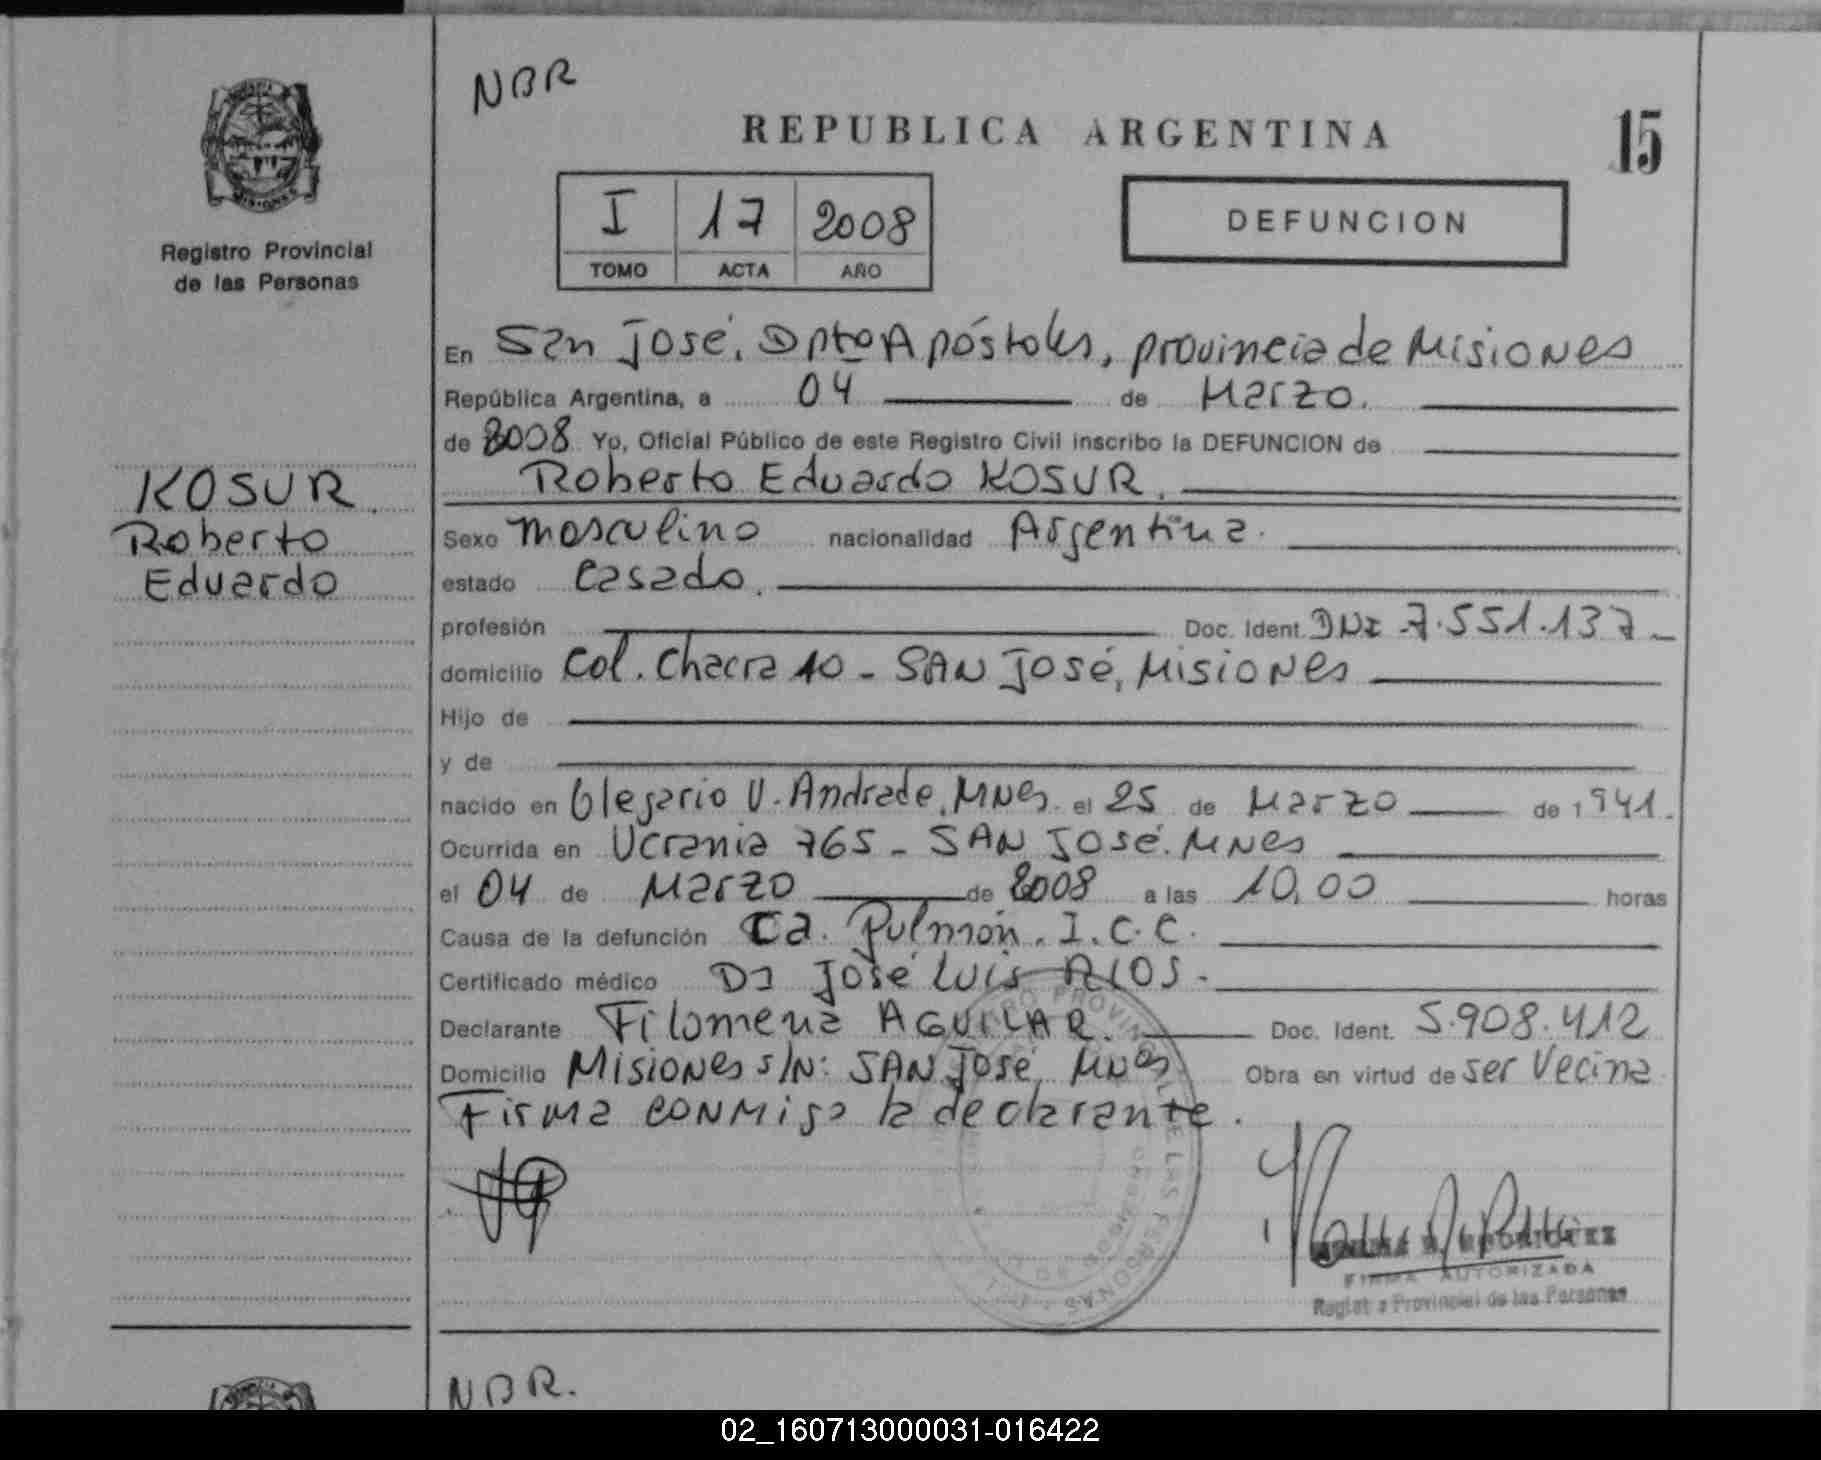 NBR
REPUBLICA ARGENTINA
15
MISIONES
Registro Provincial
de las Personas
I 17 2008
TOMO ACTA AÑO
DEFUNCION
En San José, Dpto Apóstoles, provincia de Misiones
República Argentina, a 04 de Marzo.
de 2008 Yo, Oficial Público de este Registro Civil inscribo la DEFUNCION de
Roberto Eduardo KOSUR.
KOSUR.
Roberto
Eduardo
Sexo masculino nacionalidad Argentina.
estado Casado.
profesión Doc. Ident. DNI 7.551.137
domicilio Col. Chacra 10 - SAN José, Misiones
Hijo de
y de
nacido en Olegario V. Andrade, MNes. el 25 de Marzo de 1941.
Ocurrida en Ucrania 765 - SAN José. MNes
el 04 de Marzo de 2008 a las 10,00 horas
Causa de la defunción Ca. Pulmón. I.C.C.
Certificado médico Dr José Luis RIOS.
Declarante Filomena AGUILAR. Doc. Ident. 5.908.412
Domicilio Misiones s/N: SAN José, MNes Obra en virtud de ser Vecina
Firma conmigo la declarante.
REGISTRO PROVINCIAL DE LAS PERSONAS
FIRMA AUTORIZADA
Registro Provincial de las Personas
NBR.
02_160713000031-016422